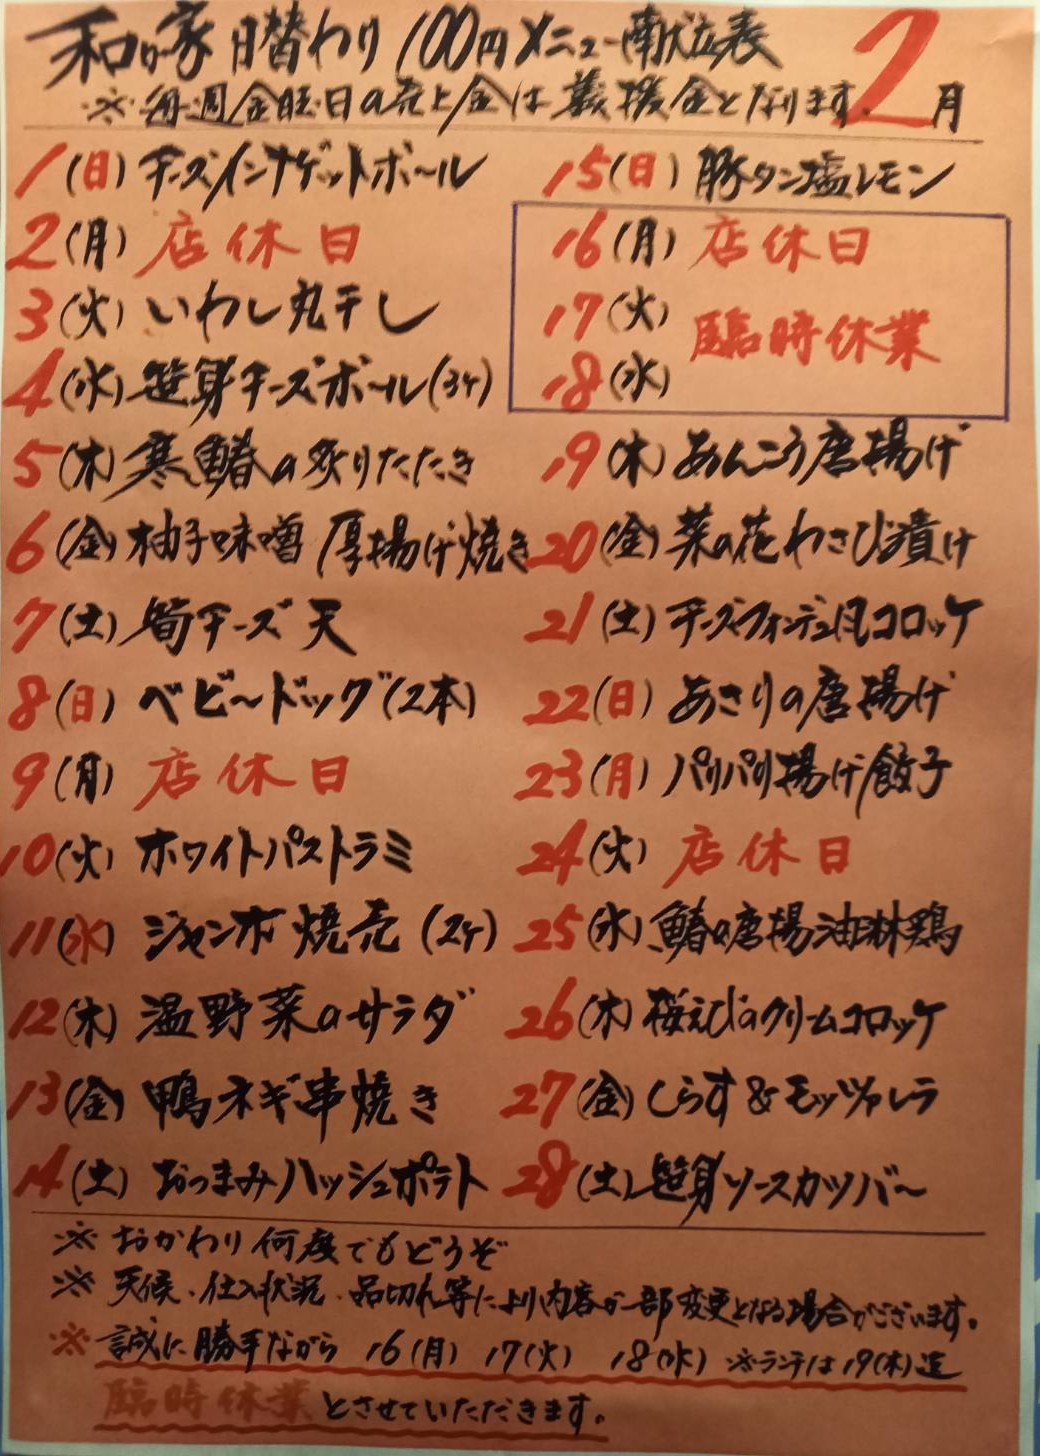 和が家 日替わり 100円メニュー献立表 2月
※ 毎週金曜日の売上金は義援金となります。
1(日) チーズインナゲットボール
2(月) 店休日
3(火) いわし丸干し
4(水) 笹身チーズボール(3ヶ)
5(木) 寒鰆の炙りたたき
6(金) 柚子味噌 厚揚げ焼き
7(土) 筍チーズ天
8(日) ベビードッグ(2本)
9(月) 店休日
10(火) ホワイトパストラミ
11(水) ジャンボ焼売(2ヶ)
12(木) 温野菜のサラダ
13(金) 鴨ネギ串焼き
14(土) おつまみハッシュポテト
15(日) 豚タン塩レモン
16(月) 店休日
17(火) 臨時休業
18(水)
19(木) あんこう唐揚げ
20(金) 菜の花わさび漬け
21(土) チーズフォンデュ風コロッケ
22(日) あさりの唐揚げ
23(月) パリパリ揚げ餃子
24(火) 店休日
25(水) 鰆の唐揚油淋鶏
26(木) 桜えびのクリームコロッケ
27(金) しらす&モッツァレラ
28(土) 笹身ソースカツバー
※ おかわり何度でもどうぞ
※ 天候・仕入状況・品切れ等により内容が一部変更となる場合がございます。
※ 誠に勝手ながら 16(月) 17(火) 18(水) ※ランチは19(木)迄
臨時休業とさせていただきます。